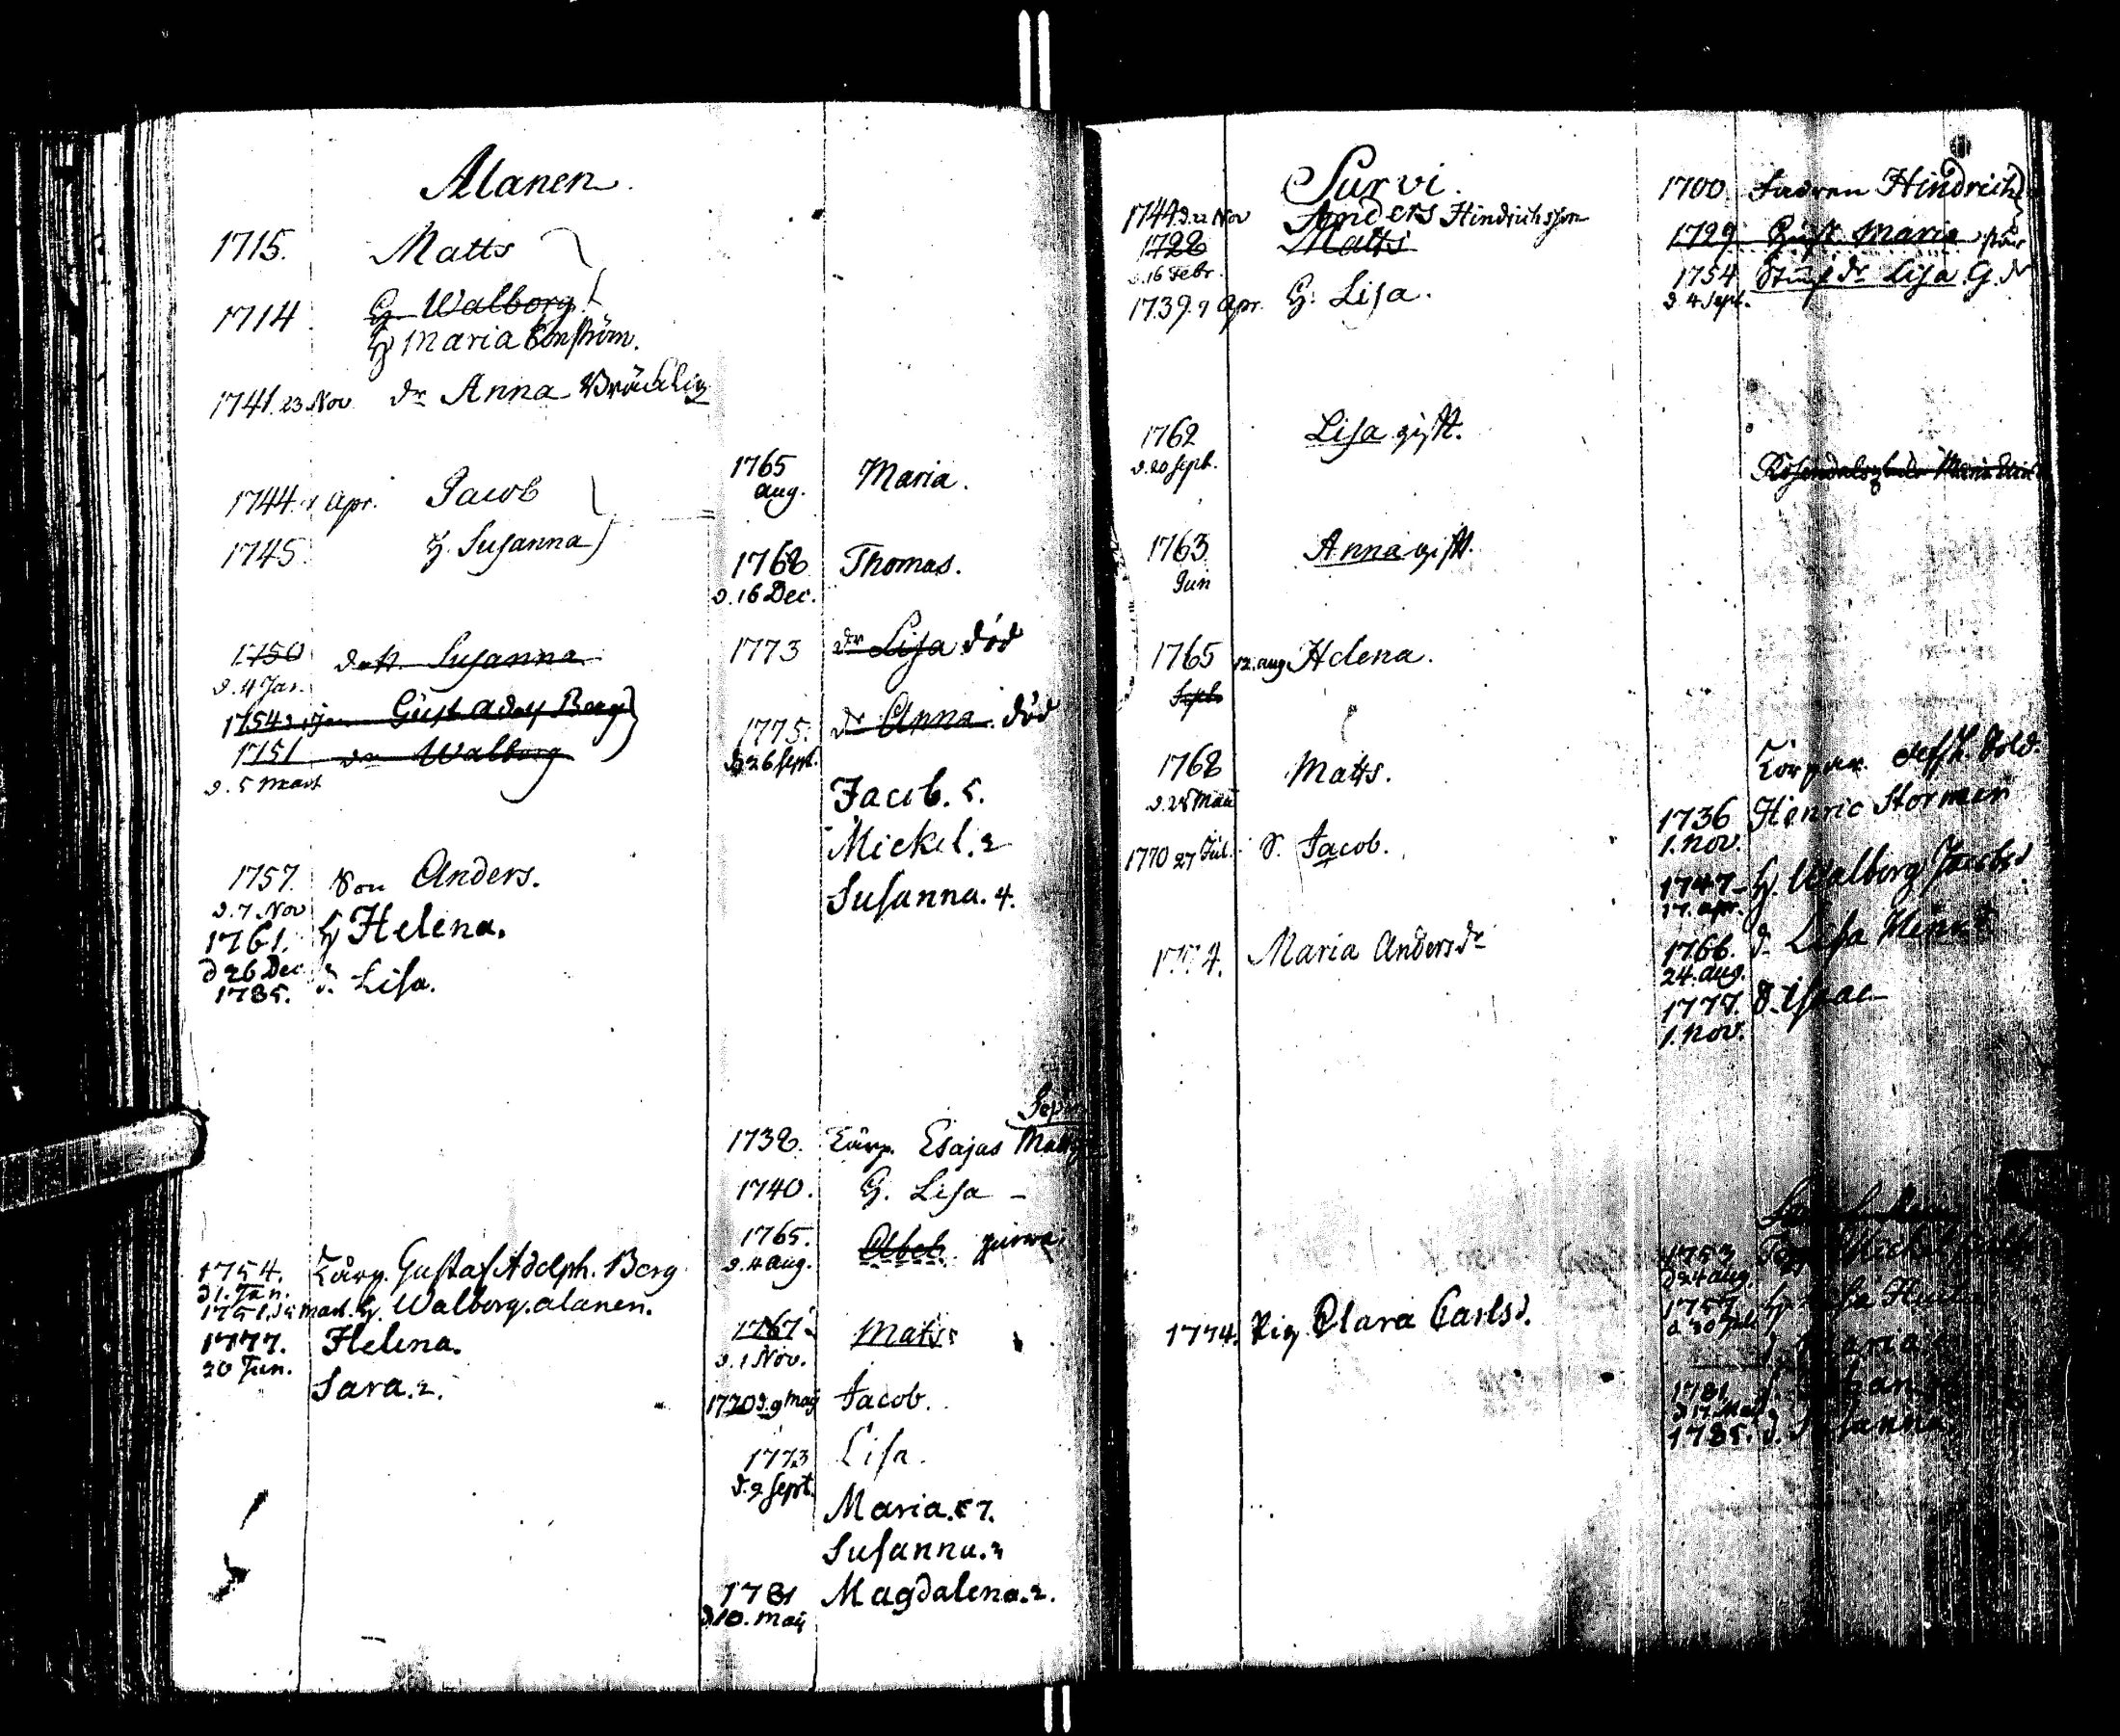 Alanen.
1715. Matts
1714 H. Walborg
H Maria
1741. 23 Nov dr Anna Bräcklig
1744. Apr. Jacob
1745. H. Susanna
1750 dott. Susanna
d. 4 Jan.
1754 Gust Adolf Berg
1751 dr Walborg
d. 5 Mart
1757. Son Anders.
d. 7 Nov
1761. H Helena.
d 26 Dec
1785. d. Lisa.
1754. Torp. Gustaf Adolph. Berg
d 1. Jan.
1751. d 5 mart. H. Walborg. alanen.
1777. Helena.
20 Jun.
Sara. 2.
1765 Maria.
aug.
1768 Thomas.
d. 16 Dec.
1773 dr Lisa död
1775. dr Anna död
d 26 Sept.
Jacob. 5.
Mickel. 2
Susanna. 4.
1738. Torp. Esajas
1740. H. Lisa
1765. Abel
d. 4 aug.
1767 Matts
d. 1 Nov.
1770 d. 9 Maij Jacob.
1773 Lisa.
d. 9 Sept.
Maria. 7.
Susanna. 2
1781 Magdalena. 2.
d 10. Maij
Survi.
1744 d. 22 Nov Anders Hindrichsson
1728 Matts
d. 16 Febr.
1739. 9 Apr. H. Lisa.
1762 Lisa gift.
d. 20 Sept.
1763 Anna gift.
Jun
1765 12. aug Helena.
Sept
1768 Matts.
1770 27 Jul. S. Jacob.
1774. Maria Anders dr
1774. Pig. Clara Carls d.
1700. Fadren Hindrich
1729. Hust. Maria
1754 Stuf dr Lisa G. dr
d. 4 Sept.
1736 Henric Stormen
1. Nov.
1747 H. Walborg Jacobs d
17. apr.
1766. d. Lisa
24. aug.
1777. S. Isaac
1. Nov.
1753
d 24 aug.
1757
1781
1785. d. Susanna